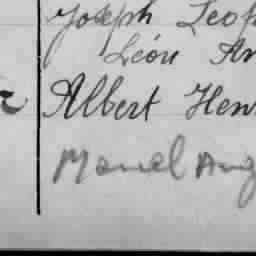 Joseph Leop
Léon An
Albert Hen
Marcel Aug